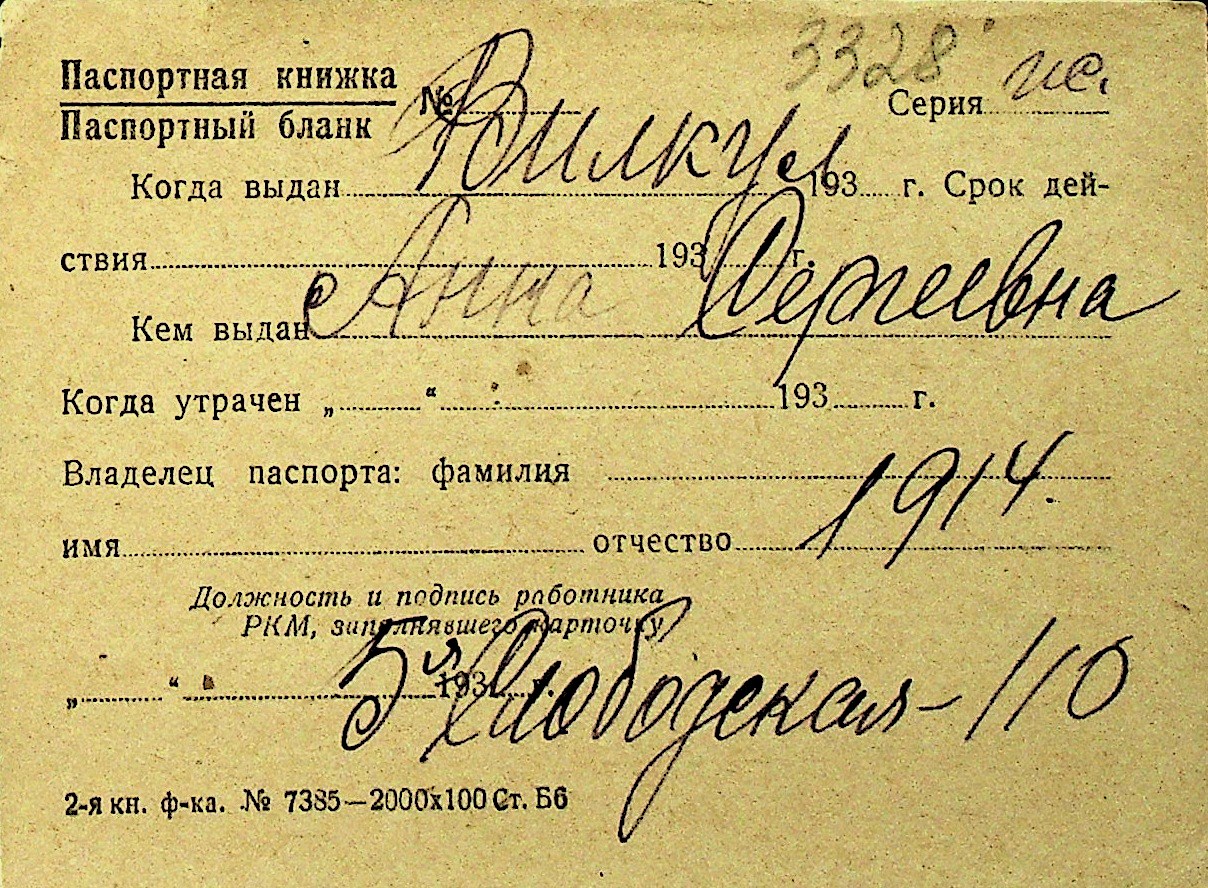 3328 ис.
Паспортная книжка
Паспортный бланк
№ Серия
Вилкул
Когда выдан 193 г. Срок дей-
ствия 193 г.
Анна Сергеевна
Кем выдан
Когда утрачен „ “ 193 г.
Владелец паспорта: фамилия
1914.
имя отчество
Должность и подпись работника
РКМ, заполнявшего карточку
5я Слободская - 110
„ “ 193 г.
2-я кн. ф-ка. № 7385—2000х100 Ст. Б6